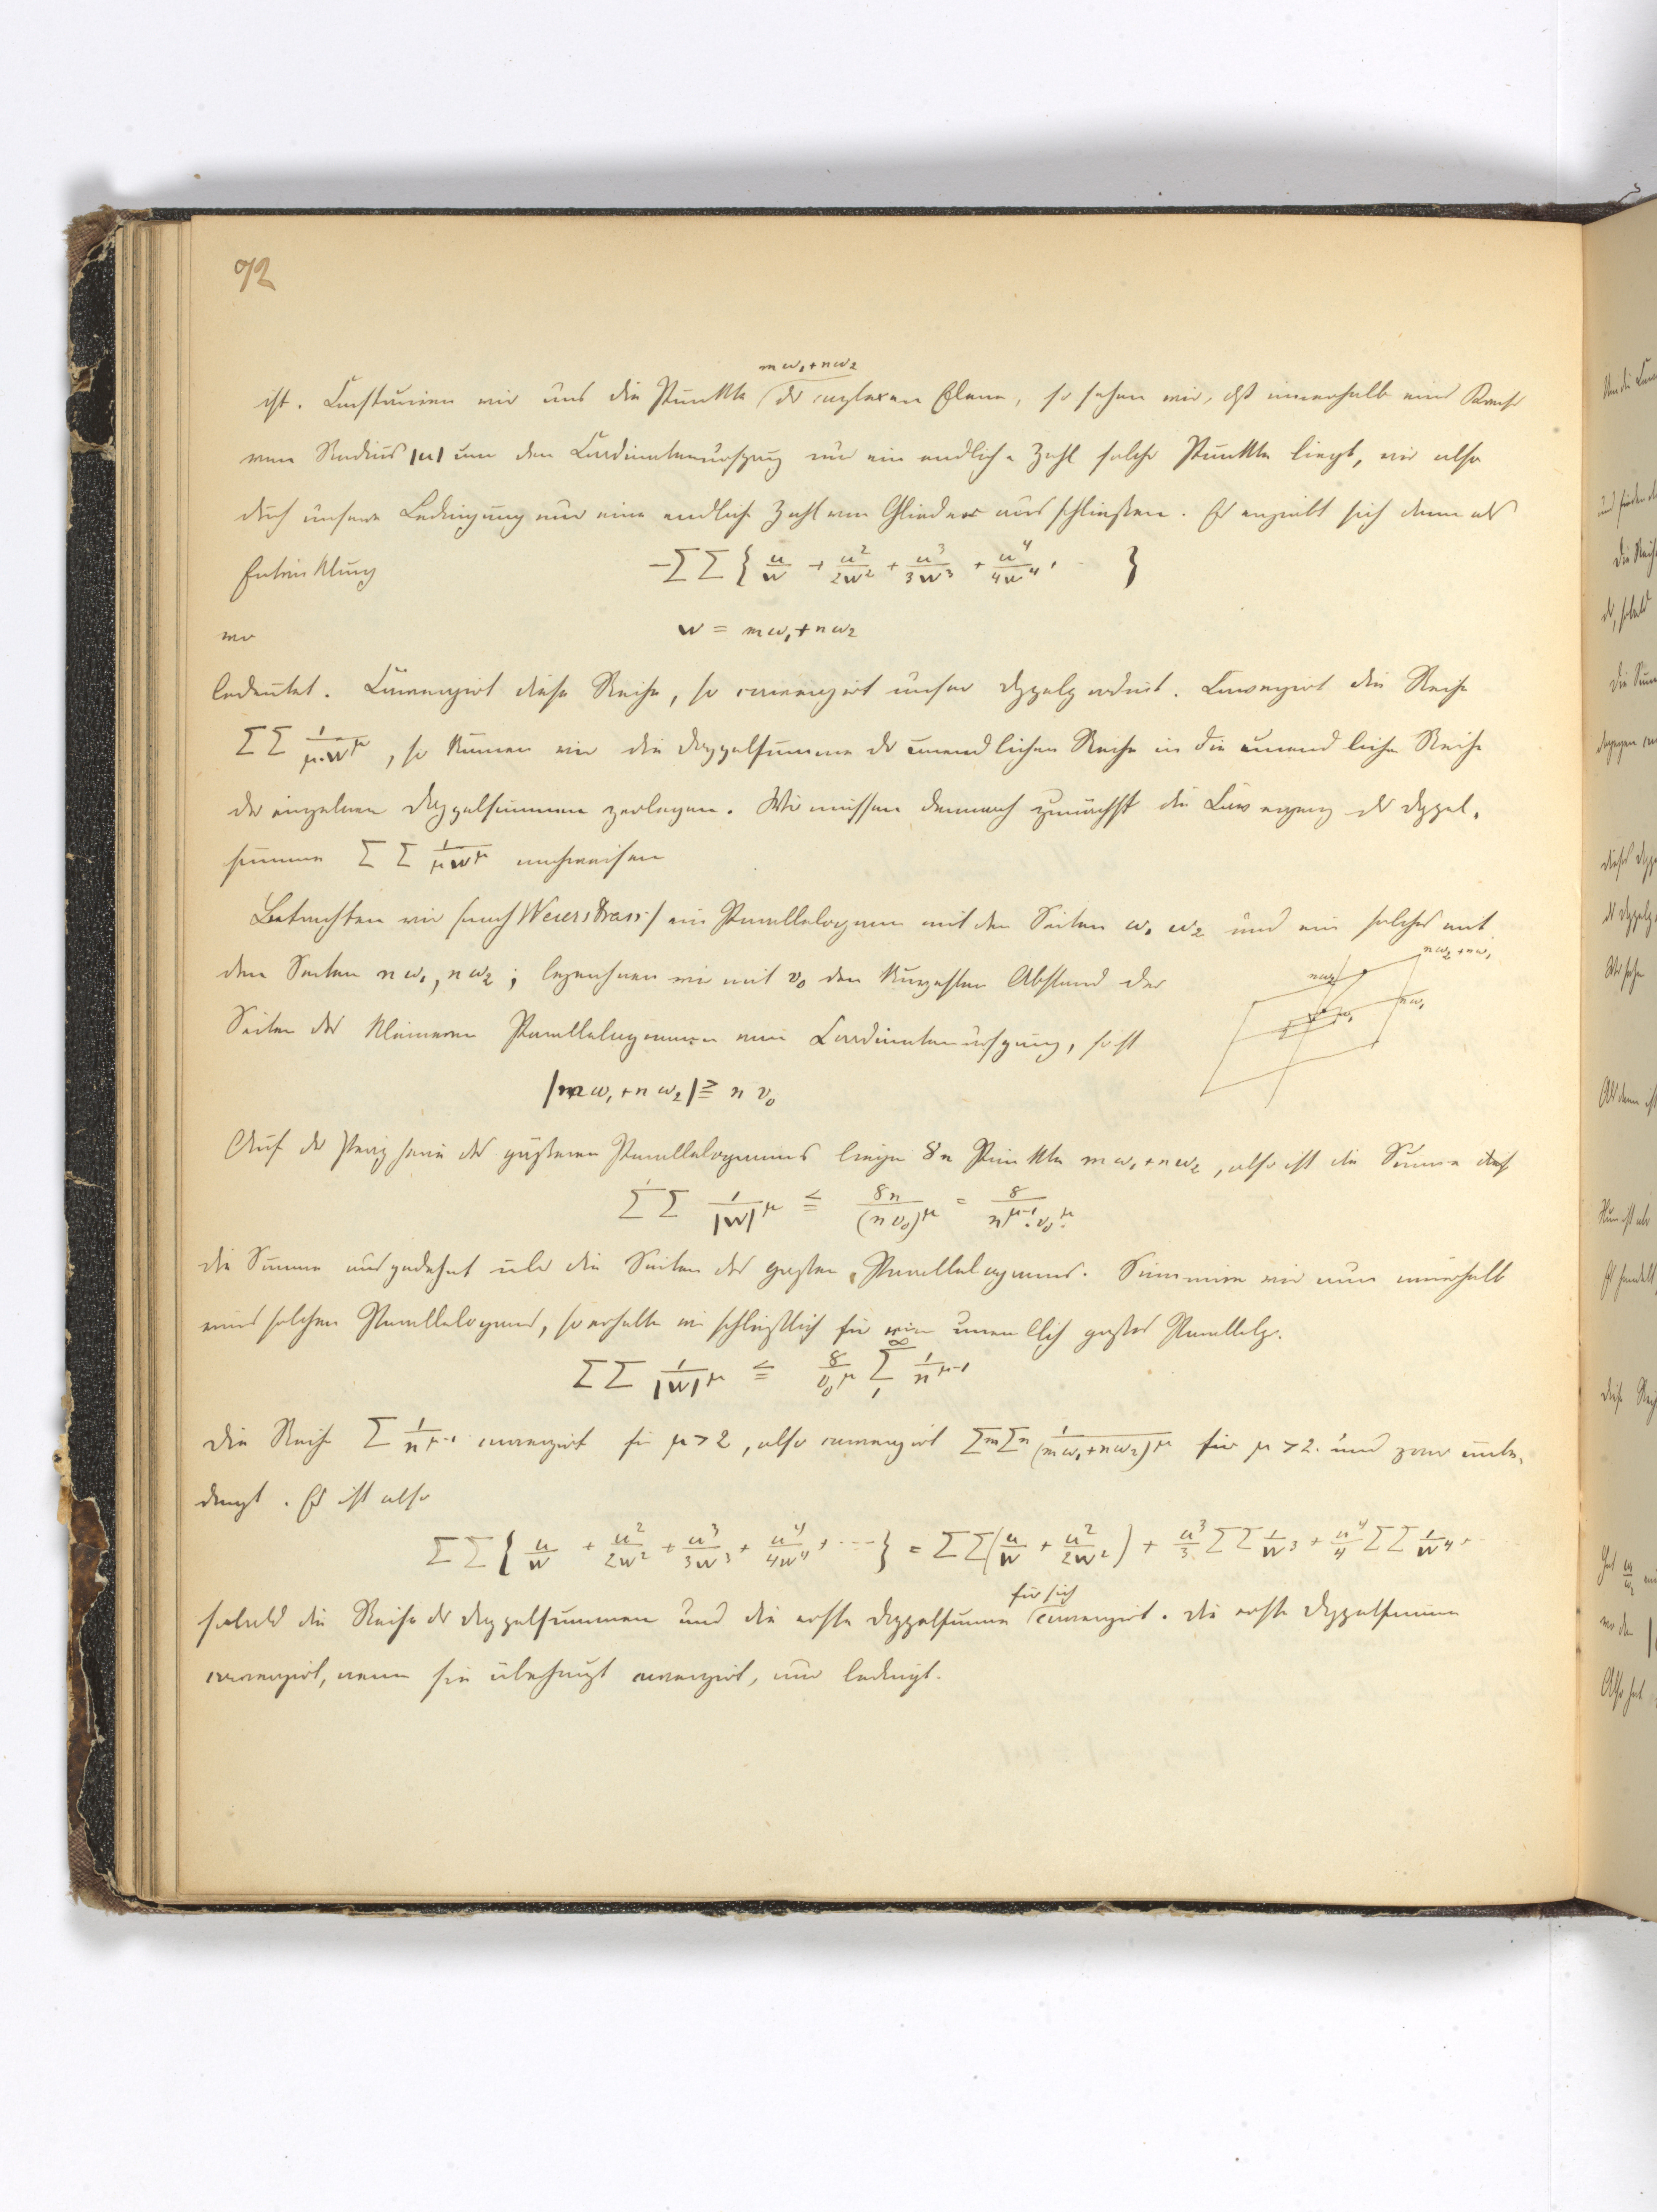 92
mω₁+nω₂
ist. Construiren wir uns die Punkte der complexen Ebene, so sehen wir, dß innerhalb eines Kreises
vom Radius |u| um den Coordinatenursprung nur eine endliche Zahl solcher Punkte liegt, wir also
durch unsere Bedingung nur eine endliche Zahl von Gliedern ausschließen. Es ergiebt sich dann als
Entwicklung −ΣΣ { u/w + u²/2w² + u³/3w³ + u⁴/4w⁴ + · · }
wo w = mω₁+nω₂
bedeutet. Convergirt diese Reihe, so convergirt unser Doppelproduct. Convergirt die Reihe
ΣΣ 1/μ·w^μ, so können wir die Doppelsumme der unendlichen Reihe in die unendliche Reihe
der einzelnen Doppelsummen zerlegen. Wir müssen demnach zunächst die Convergenz der Doppel-
summe ΣΣ 1/μw^μ nachweisen
Betrachten wir (nach Weierstrass) ein Parallelogramm mit den Seiten ω₁ ω₂ und ein solches mit
den Seiten nω₁, nω₂; bezeichnen wir mit v₀ den kürzesten Abstand der
nω₂+nω₁
nω₂
nω₁
ω₁
Seiten des kleineren Parallelogramms vom Coordinatenursprung, so ist
|mω₁+nω₂| ≧ n v₀
Auf der Peripherie des größeren Parallelogramms liegen 8n Punkte mω₁+nω₂, also ist die Summe
Σ'Σ 1/|w|^μ ≦ 8n/(nv₀)^μ = 8/n^{μ-1}·v₀^μ
die Summe ausgedehnt über die Seiten des großen Parallelogramms. Summiren wir nun innerhalb
eines solchen Parallelogramms, so erhalten wir schließlich für ein unendlich großes Parallelg.
ΣΣ 1/|w|^μ ≦ 8/v₀^μ Σ₁^∞ 1/n^{μ-1}
Die Reihe Σ 1/n^{μ-1} convergirt für μ>2, also convergirt Σm Σn 1/(mω₁+nω₂)^μ für μ>2. und zwar unbe-
dingt. Es ist also
ΣΣ { u/w + u²/2w² + u³/3w³ + u⁴/4w⁴ + ··· } = ΣΣ(u/w + u²/2w²) + u³/3 ΣΣ 1/w³ + u⁴/4 ΣΣ 1/w⁴ + ··
für sich
sobald die Reihe der Doppelsummen und die erste Doppelsumme convergirt. Die erste Doppelsumme
convergirt, wenn sie überhaupt convergirt, nur bedingt.